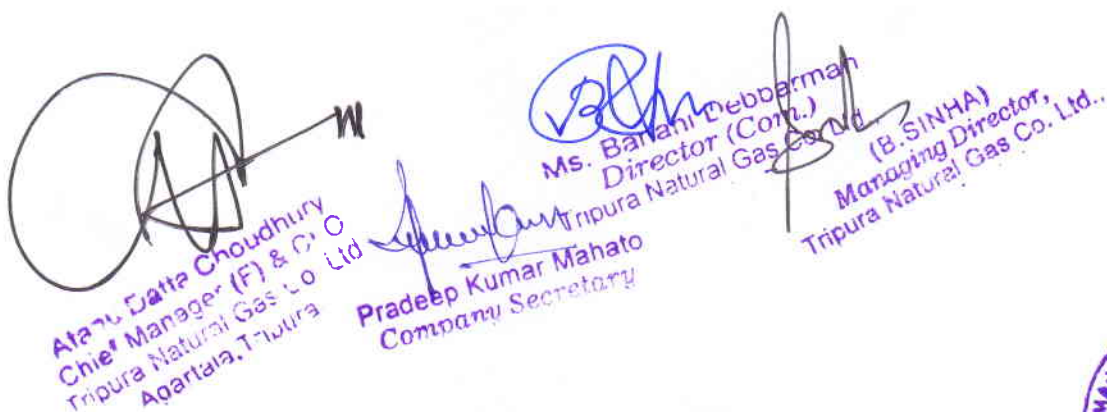 Atanu Datta Choudhury
Chief Manager (F) & CFO
Tripura Natural Gas Co Ltd
Agartala, Tripura
Pradeep Kumar Mahato
Company Secretary
Ms. Barnani Debbarman
Director (Com.)
Tripura Natural Gas Co Ltd.,
(B.SINHA)
Managing Director,
Tripura Natural Gas Co. Ltd..